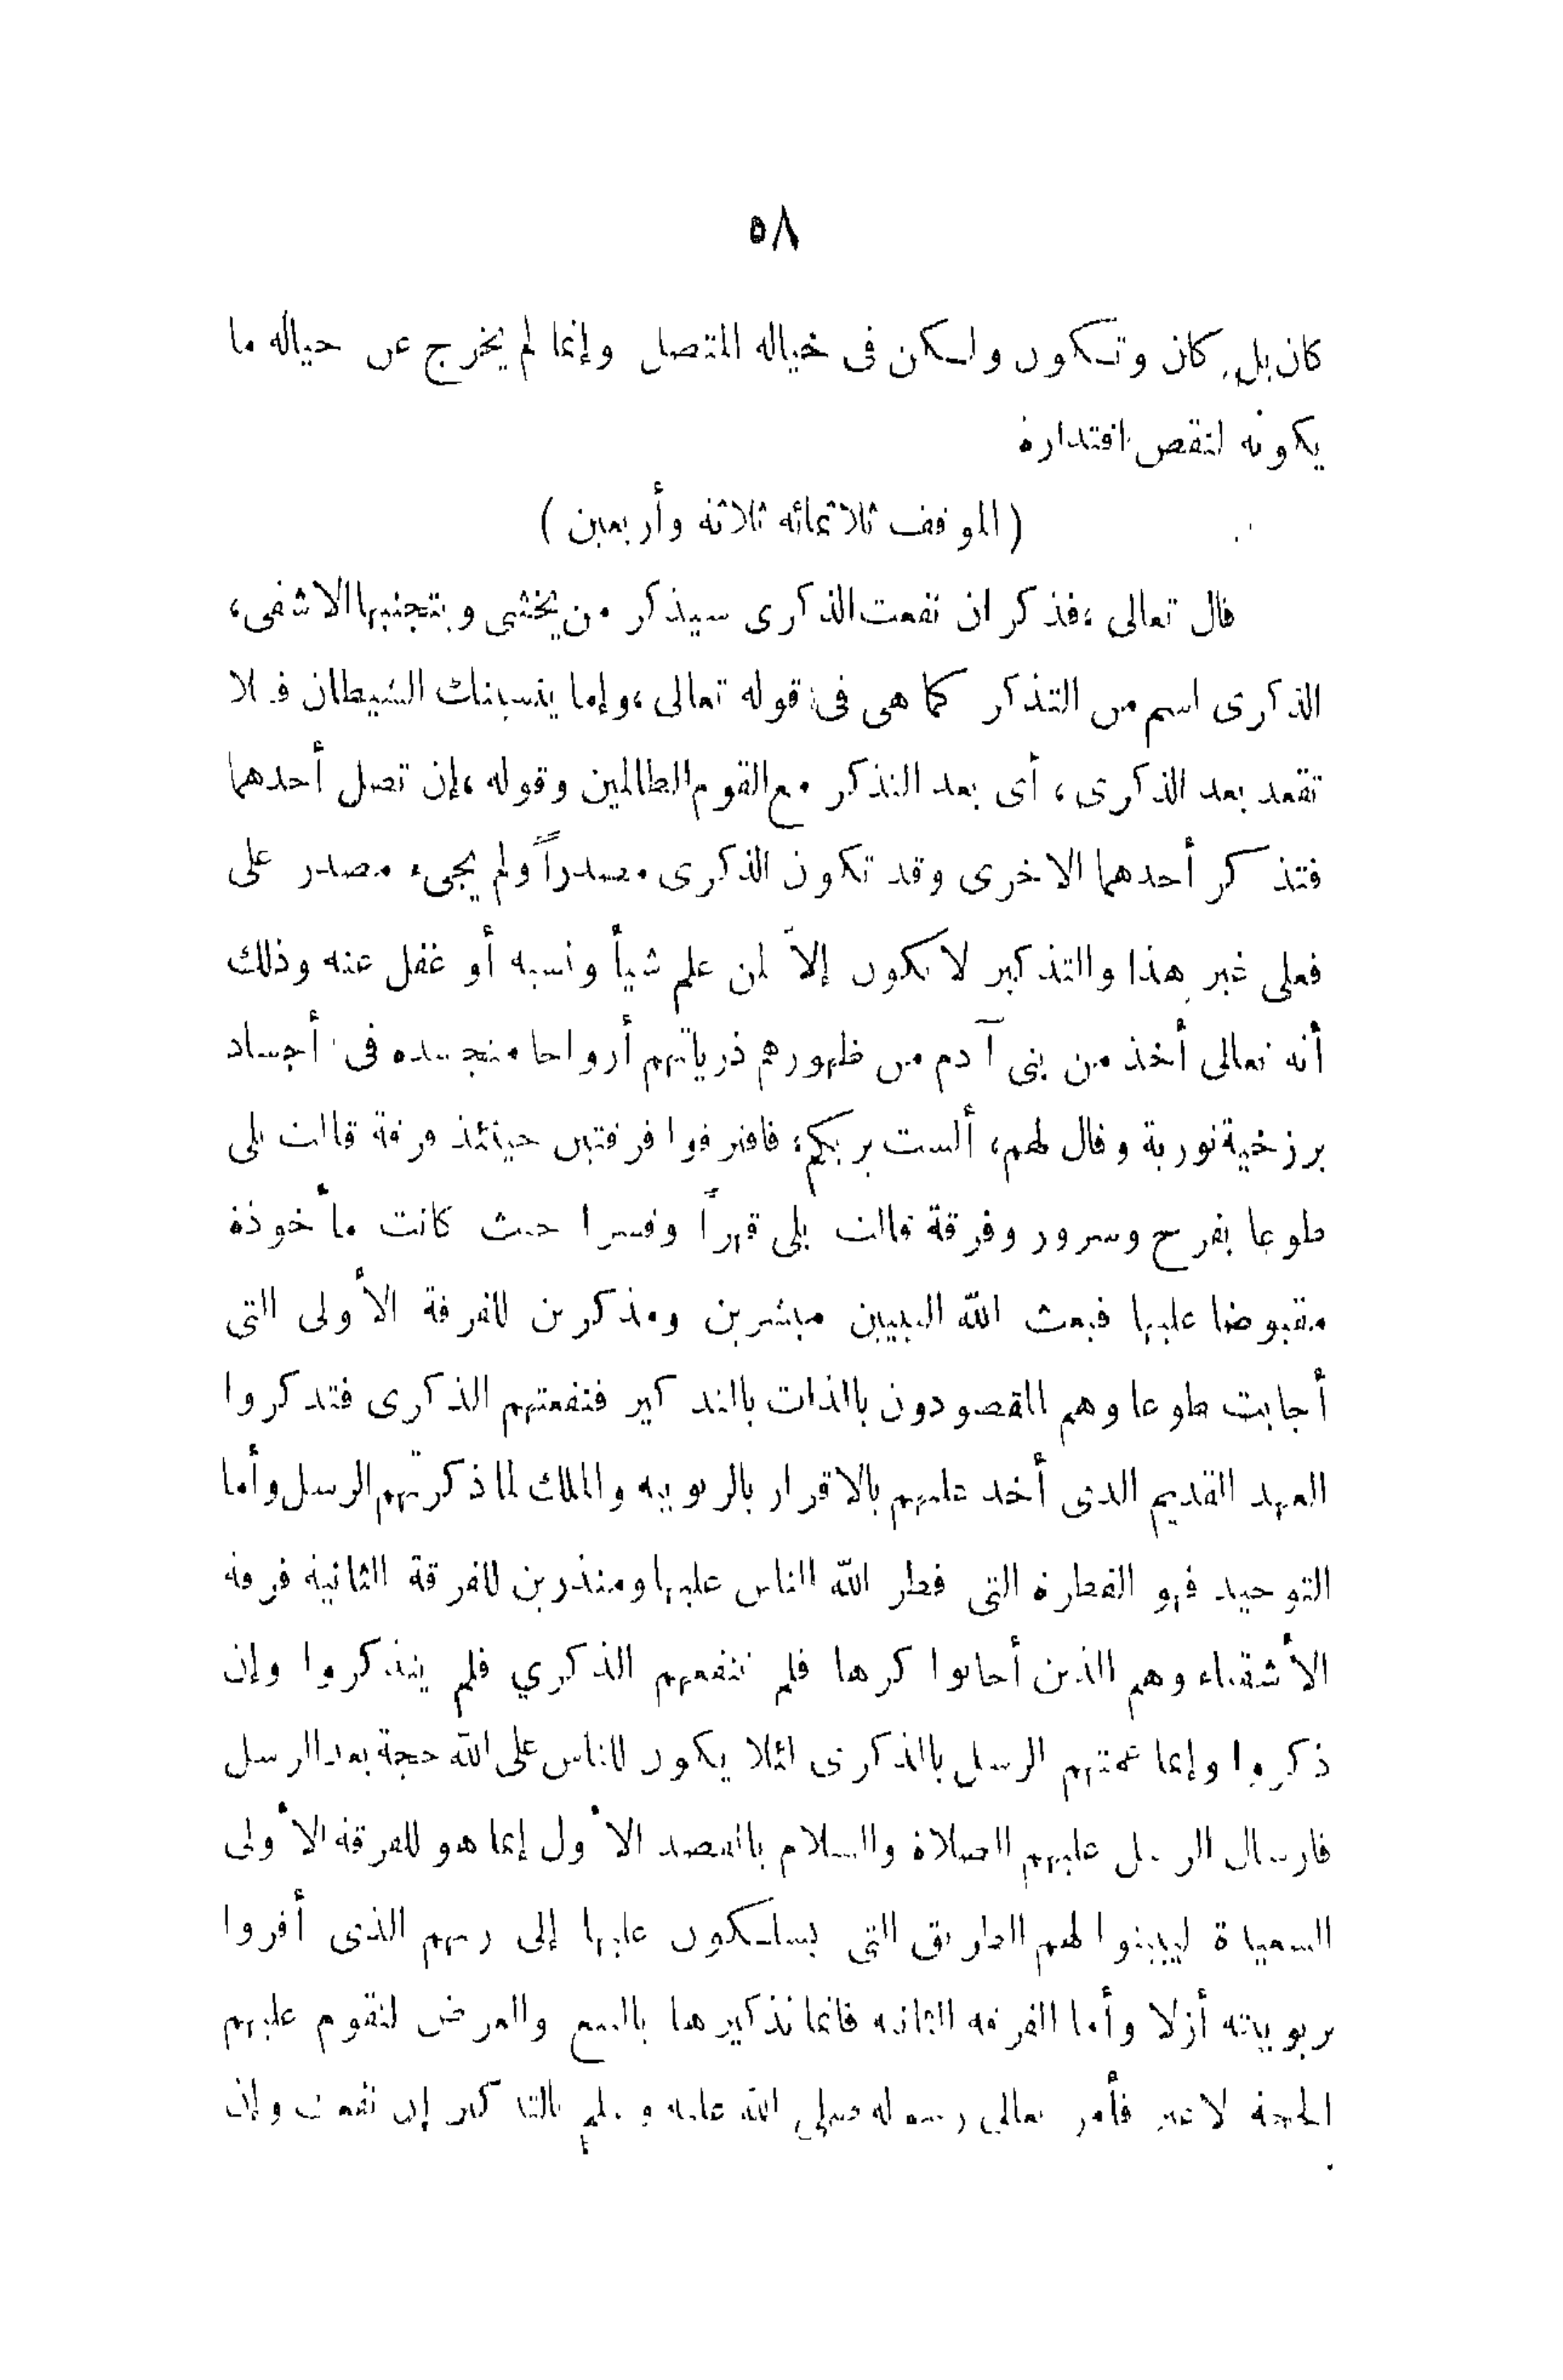 ٥٨
كان بل كان وتكون ولكن فى خياله المتصل وإنما لم يخرج عن خياله ما
يكونه لنقص اقتداره
( الموقف ثلاثمائة ثلاثة وأربعين )
قال تعالى ،فذكر ان نفعت الذكرى سيذكر من يخشى ويتجنبها الاشقى،
الذكرى اسم من التذكر كما هى فى قوله تعالى ،وإما ينسينك الشيطان فلا
تقعد بعد الذكرى، أى بعد التذكر مع القوم الظالمين وقوله ،إن تضل أحدهما
فتذكر أحدهما الاخرى وقد تكون الذكرى مصدراً ولم يجىء مصدر على
فعلى غير هذا والتذكير لا يكون إلا لمن علم شيأ ونسيه أو غفل عنه وذلك
أنه تعالى أخذ من بنى آدم من ظهورهم ذرياتهم أرواحا متجسده فى أجساد
برزخية نورية وقال لهم، ألست بربكم، فافترقوا فرقتين حينئذ فرقة قالت بلى
طوعا بفرح وسرور وفرقة قالت بلى قهراً وقسرا حيث كانت مأخوذة
مقبوضا عليها فبعث الله النبيين مبشرين ومذكرين للفرقة الأولى التى
أجابت طوعا وهم المقصودون بالذات بالتذكير فنفعتهم الذكرى فتذكروا
العهد القديم الذى أخذ عليهم بالاقرار بالربوبيه والملك لما ذكرتهم الرسل وأما
التوحيد فهو الفطرة التى فطر الله الناس عليها ومنذرين للفرقة الثانية فرقة
الأشقياء وهم الذين أجابوا كرها فلم تنفعهم الذكري فلم يتذكروا وإن
ذكروا وإنما عمتهم الرسل بالذكرى لئلا يكون للناس على الله حجة بعد الرسل
فارسال الرسل عليهم الصلاة والسلام بالقصد الأول إنما هو للفرقة الأولى
السعيدة ليبينوا لهم الطريق التى يسلكون عليها إلى ربهم الذى أقروا
بربوبيته أزلا وأما الفرقة الثانية فانما تذكيرها بالتبع والعرض لتقوم عليهم
الحجة لا غير فأمر تعالى رسوله صلى الله عليه وسلم بالتذكير إن نفعت وإن